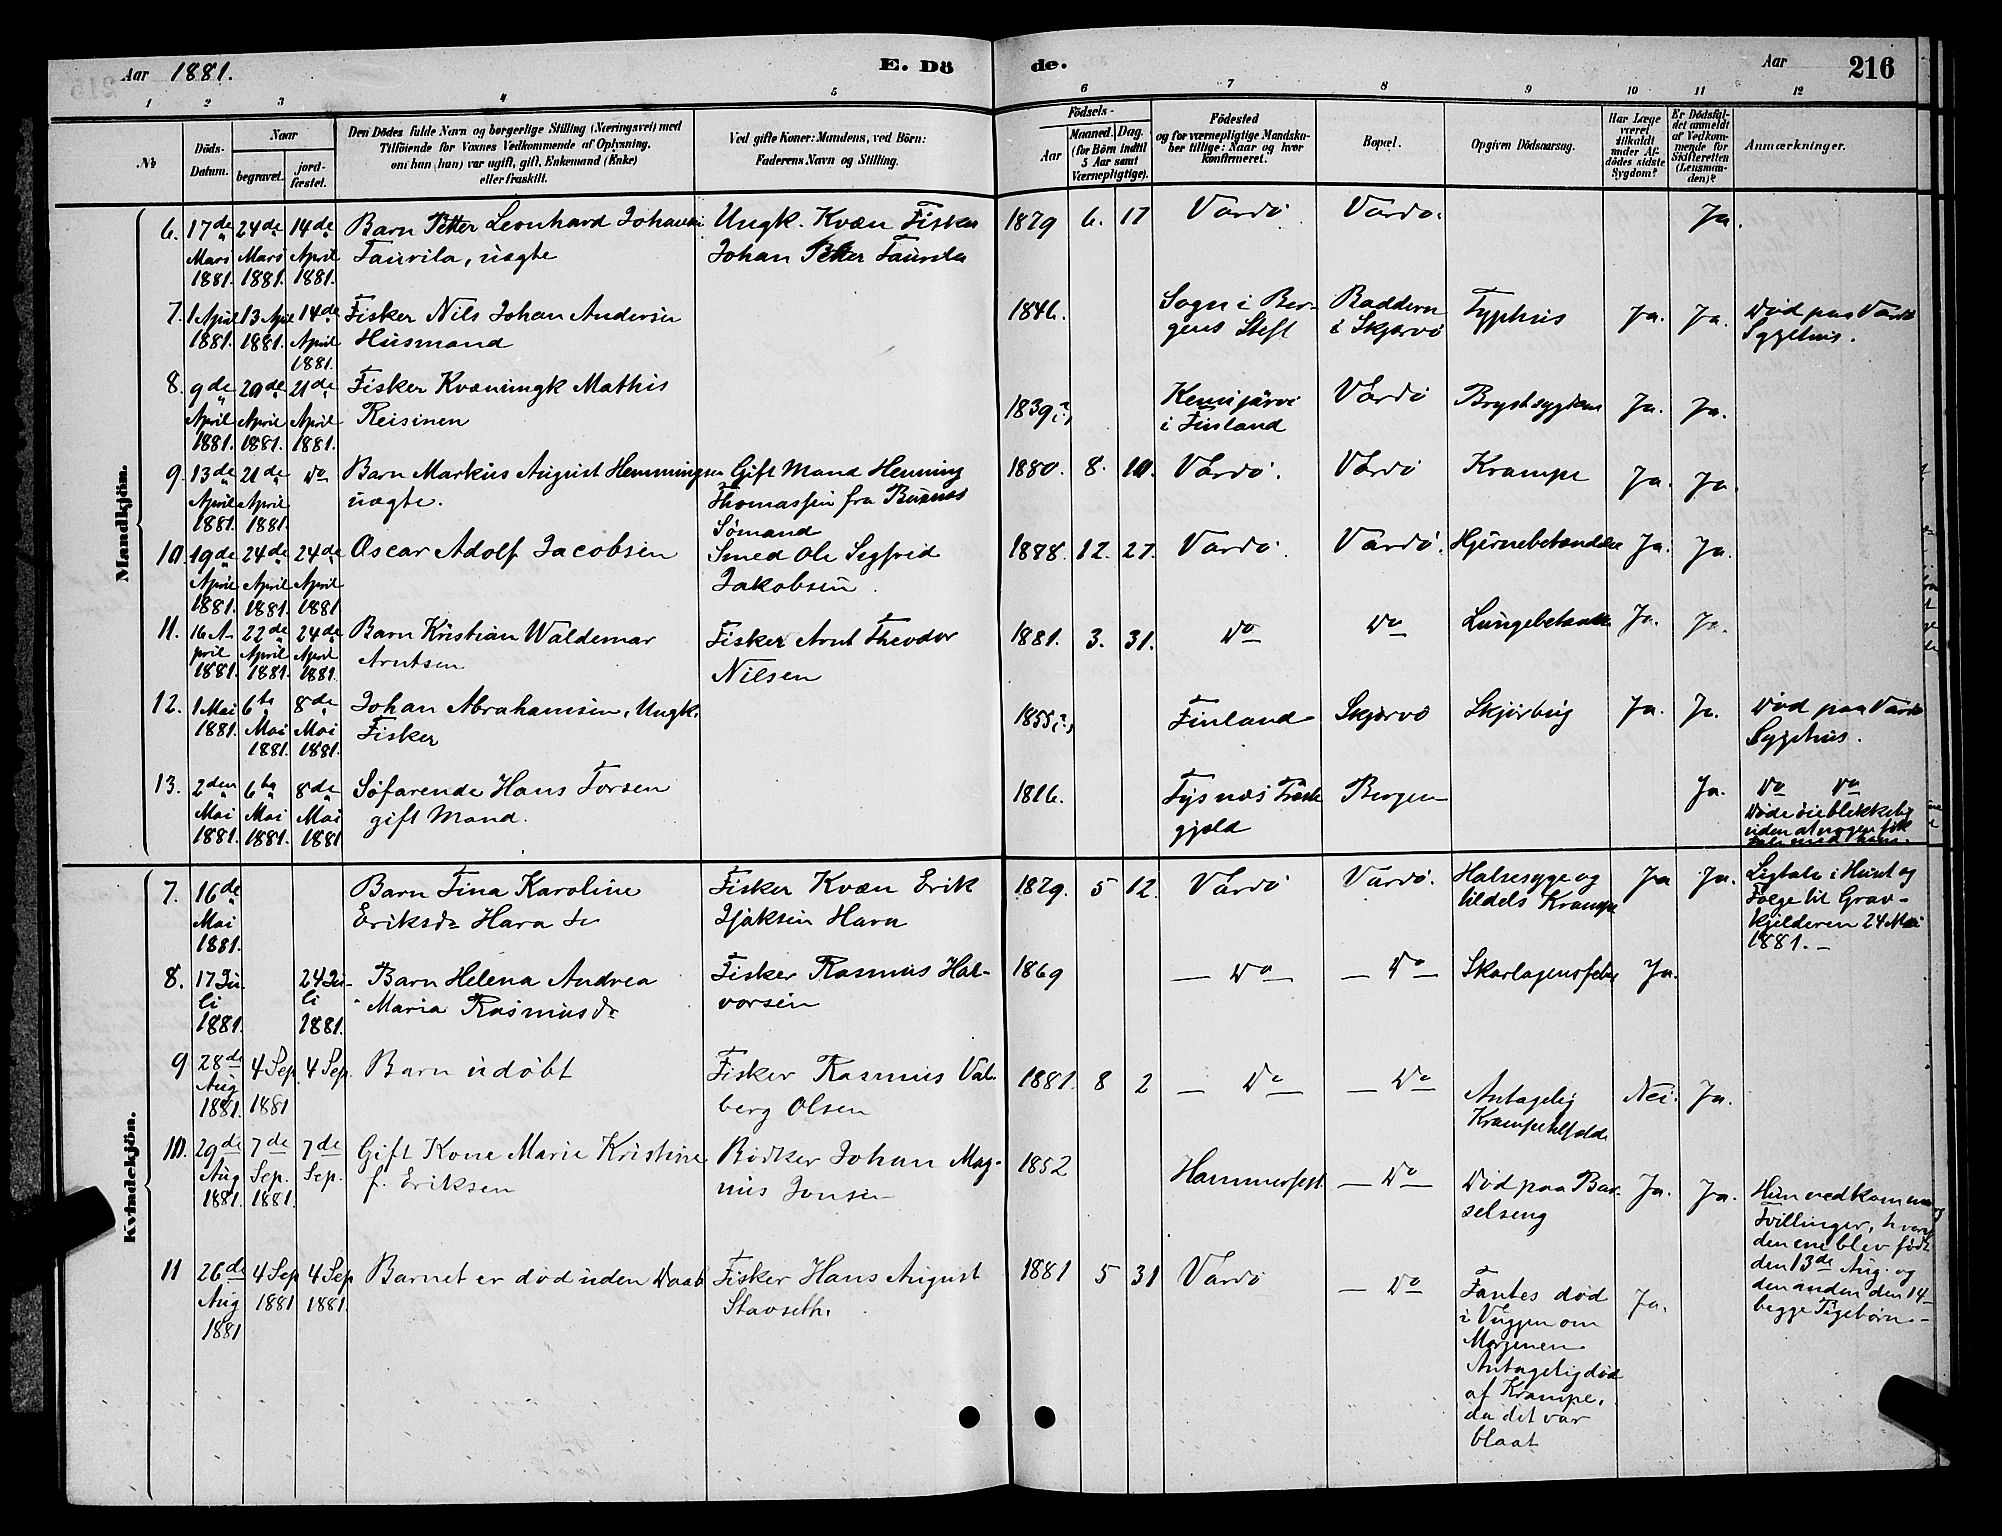 Aar 1881. E. Dö
de. Aar 216
1 2 3 4 5
6 7 8 9 10 11 12
№
Döds-
Datum.
Naar
begravet.
jord-
fæstet.
Den Dödes fulde Navn og borgerlige Stilling (Næringsvei) med
Tilföiende for Voxnes Vedkommende af Oplysning,
om han (hun) var ugift, gift, Enkemand (Enke)
eller fraskilt.
Ved gifte Koner: Mandens, ved Börn:
Faderens Navn og Stilling.
Födsels-
Aar
Maaned. Dag.
(for Börn indtil
5 Aar samt
Værnepligtige).
Födested
og for værnepligtige Mandska-
ber tillige: Naar og hvor
konfirmeret.
Bopæl.
Opgiven Dödsaarsag.
Har Læge
været
tilkaldt
under Af-
dödes sidste
Sygdom?
Er Dödsfal-
det anmeldt
af Vedkom-
mende for
Skifteretten
(Lensman-
den)?
Anmærkninger.
Mandkjön.
6. 17de 24de 14de Barn Petter Leonhard Johansen Ungk. Kvæn Fisker 1879 6. 17 Vardö Vardö. Ja.
Mars Mars April Taurila, uægte Johan Peter Taurila
1881. 1881. 1881.
7. 1 April 13 Apr 14de Fisker Nils Johan Andersen 1846. Sogn i Ber- Baddern Typhus Ja. Ja. Död paa Vardö
1881. 1881. April Husmand gens Stift i Skjærvö Sygehus.
1881.
8. 9de 20de 21de Fisker Kvænungk Mathis 1839?, Kemijärvi Vardö Brystsygdom Ja. Ja.
April April April Reisinen i Finland
1881. 1881. 1881.
9. 13de 21de Do Barn Markus August Hemmingsen Gift Mand Henning 1880. 8. 10. Vardö. Vardö Krampe Ja. Ja.
April April uægte. Thomassen fra
1881. 1881. Sömand
10. 19de 24de 24de Oscar Adolf Jacobsen Smed Ole Sigfrid 1888. 12. 27. Vardö. Vardö. Hjernebetændelse Ja. Ja.
April April April Jakobsen.
1881. 1881. 1881
11. 16 A- 22de 24de Barn Kristian Waldemar Fisker Arnt Theodor 1881. 3. 31. Do Do Lungebetændelse Ja. Ja.
pril April April Arntsen Nilsen
1881. 1881. 1881.
12. 1 Mai 6te 8de Johan Abrahamsen, Ungk. 1855?, Finland Skjærvö Skjörbug Ja. Ja. Död paa Vardö
1881. Mai Mai Fisker Sygehus.
1881. 1881.
13. 2den 6te 8de Söfarende Hans Torsen 1816. Tysnæs Præste Bergen Ja. Do Do
Mai Mai Mai gift Mand. gjeld Döde öieblikkelig
1881. 1881. 1881 uden at nogen fik
tale med ham.
Kvindekjön.
7. 16de Barn Tina Karoline Fisker Kvæn Erik 1879. 5 12. Vardö Vardö. Halsesyge og Ja Ja. Ligtale i Huset og
Mai Eriksdr Hara Isaksen Hara tildels Krampe Fölge til Grav-
1881. kjelderen 24 Mai
1881. –
8. 17 Ju- 24 Ju- Barn Helena Andrea Fisker Rasmus Hal- 1869 – Do – – Do – Skarlagensfeber Ja.
li li Maria Rasmusdr vorsen
1881. 1881.
9 28de 4 Sep 4 Sep. Barn udöbt Fisker Rasmus Val- 1881. 8 2 – Do – – Do Antagelig Nei. Ja.
Aug 1881 berg Olsen Krampetilfælde
1881.
10. 29de 7de 7de Gift Kone Marie Kristine Bödker Johan Mag- 1852 Hammerfest – Do – Död paa Bar- Ja. Ja. Hun nedkom med
Aug Sep. Sep. f. Eriksen nus Jonsen selseng Tvillinger, hvoraf
1881. 1881. den ene blev födt
den 13de Aug. og
den anden den 14
begge Pigebörn. –
11 26de 4 Sep 4 Sep Barnet er död uden Daab Fisker Hans August 1881 5 31 Vardö – Do Fantes död Ja.
Aug 1881 1881. Stavseth. i Vuggen om
1881 Morgenen.
Antagelig död
af Krampe,
da det var
blaat